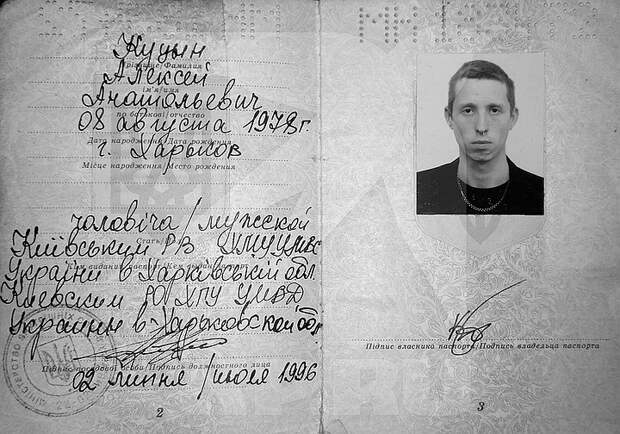 Куцын
Прізвище/Фамилия
Алексей
ім'я/имя
Анатольевич
по батькові/отчество
08 августа 1978г.
Дата народження/Дата рождения
г. Харьков
Місце народження/Место рождения
чоловіча/мужской
Стать/
Київський РВ ХМУУМВС
України в Харківській обл
Киевским РО ХГУ УМВД
Украины в Харьковской обл.
Підпис посадової особи/Подпись должностного лица
02 липня/июля 1996
2
Підпис власника паспорта/Подпись владельца паспорта
3